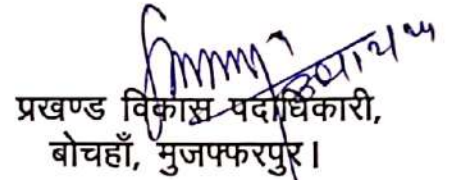 प्रखण्ड विकास पदाधिकारी,
बोचहाँ, मुजफ्फरपुर।